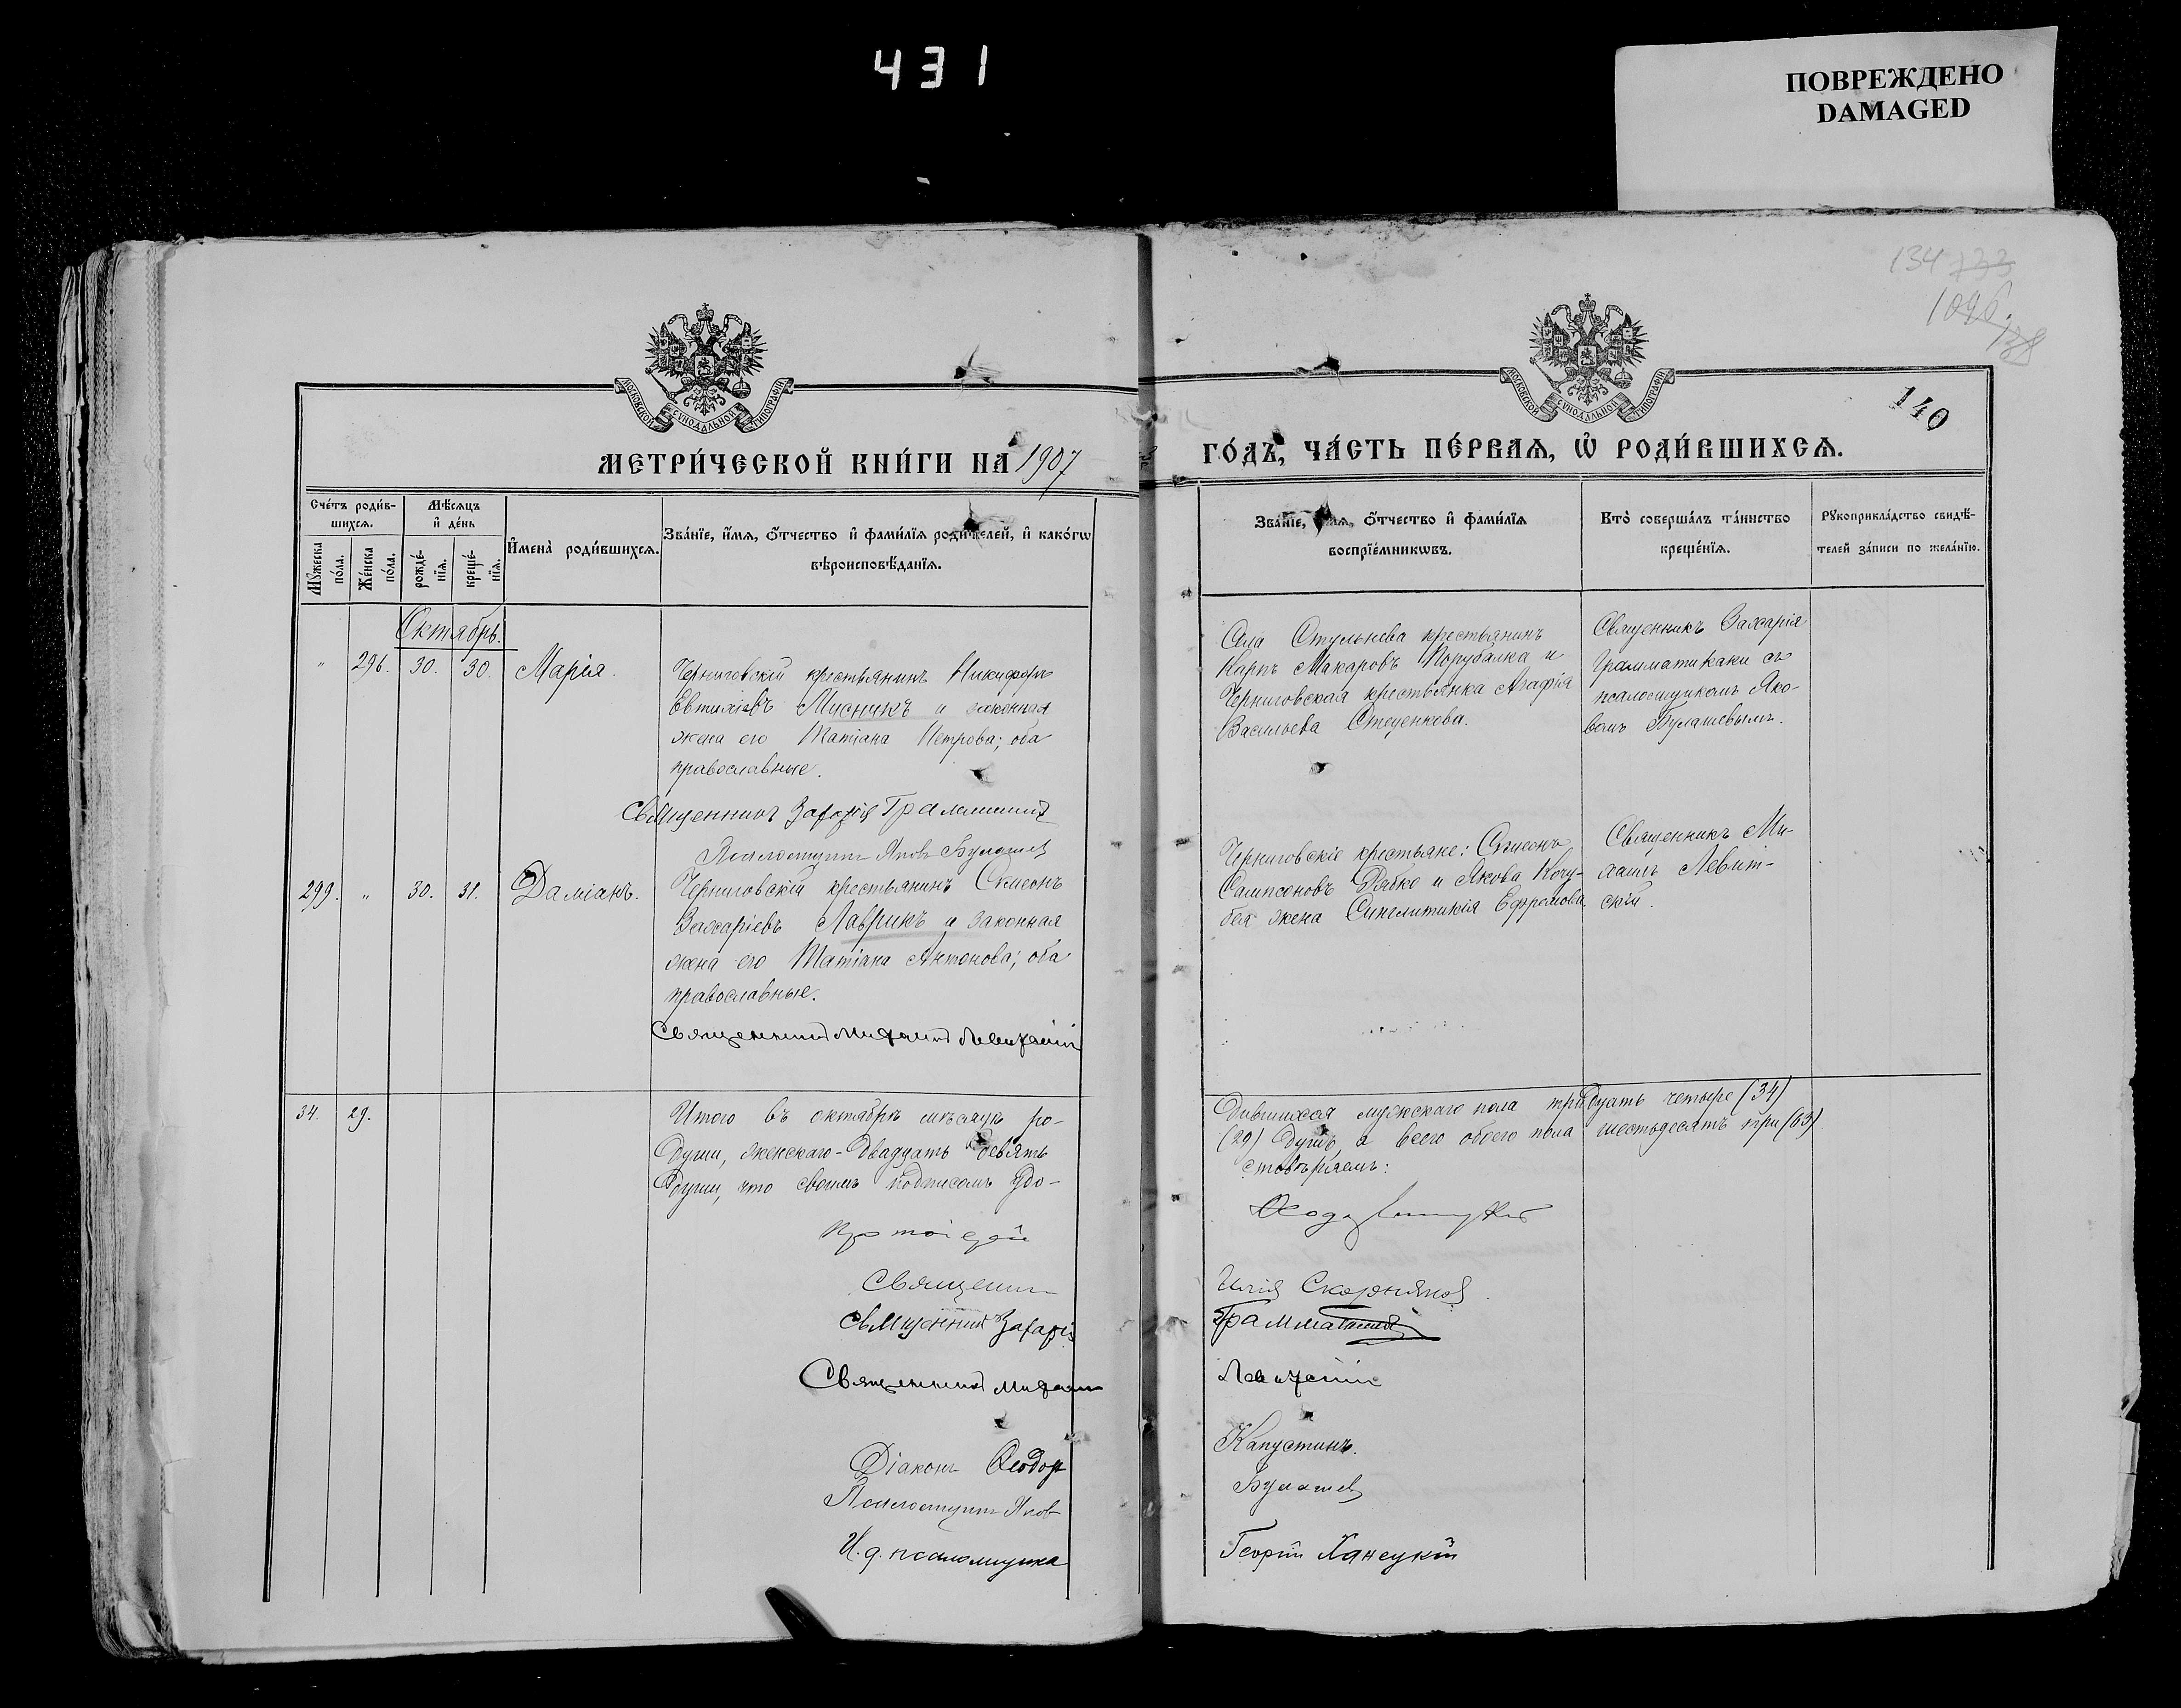 431
ПОВРЕЖДЕНО
DAMAGED
134 733
1096.
138
140
МОСКОВСКОЙ СѴНОДАЛЬНОЙ ТИПОГРАФІИ
МОСКОВСКОЙ СѴНОДАЛЬНОЙ ТИПОГРАФІИ
МЕТРИ́ЧЕСКОЙ КНИ́ГИ НА 1907
ГО́ДЪ, ЧА́СТЬ ПЕ́РВАѦ, Ѡ҆ РОДИ́ВШИХСѦ.
Сче́тъ роди́в-
шихсѧ.
Мѣ́сѧцъ
и҆ де́нь
Мꙋ́жеска по́ла.
Же́нска по́ла.
рожде́-
нїѧ.
креще́-
нїѧ.
И҆мена̀ роди́вшихсѧ.
Зва́нїе, и҆́мѧ, ѻ҆́тчество и҆ фами́лїѧ роди́телей, и҆ како́гѡ
вѣроисповѣ́данїѧ.
Зва́нїе, и҆́мѧ, ѻ҆́тчество и҆ фами́лїѧ
воспрїе́мникѡвъ.
Кто̀ соверша́лъ та́инство
креще́нїѧ.
Рꙋкоприкла́дство свидѣ́-
телей за́писи по жела́нїю.
Октябрь.
" 296. 30. 30. Марія.
Черниговскій крестьянинъ Никифоръ
Евтихіевъ Мусчукъ и законная
жена его Татіана Петрова; оба
православные.
Села Стульнева крестьянинъ
Карпъ Макаровъ Порубалка и
Черниговская крестьянка Агафія
Васильева Стеценкова.
Священникъ Захарія
Грамматикаки съ
псаломщикомъ Яко-
вомъ Булашевымъ.
Священникъ Захарія
Псаломщикъ Яковъ Булашев
299. " 30. 31. Даміанъ.
Черниговскій крестьянинъ Симеонъ
Захаріевъ Лаврикъ и законная
жена его Татіана Антонова; оба
православные.
Черниговскіе крестьяне: Симеонъ
Сампсоновъ Рябко и Якова Кочу-
бея жена Синклитикія Ефремова.
Священникъ Ми-
хаилъ Левит-
скій.
Священникъ Михаилъ Левитскій
34. 29.
Итого въ октябрѣ мѣсяцѣ ро-
дившихся мужскаго пола тридцать четыре (34)
души, женскаго-двадцать девять
(29) душъ, а всего обоего пола шестьдесятъ три (63)
души, что своимъ подписомъ удо-
стовѣряемъ:
Протоіерей
Священник Илія Скорняков
Священник Захарія
Священникъ Михаил Левитскій
Діаконъ Ѳеодоръ Капустинъ.
Псаломщикъ Яков Булашев
И. д. псаломщика Георгій Ханецкій